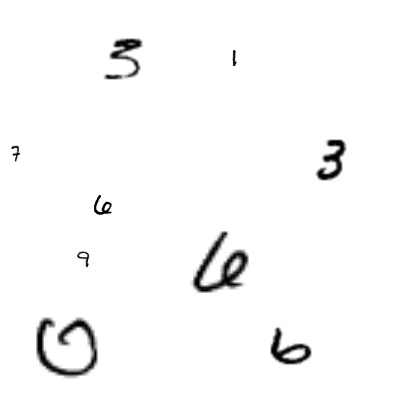 3 1
7 3
6
9 6
0 6